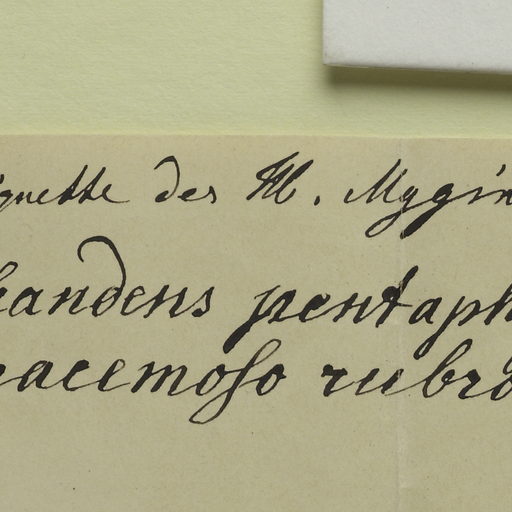 ignette des M. Mygin
candens pentaph
racemoso rubro